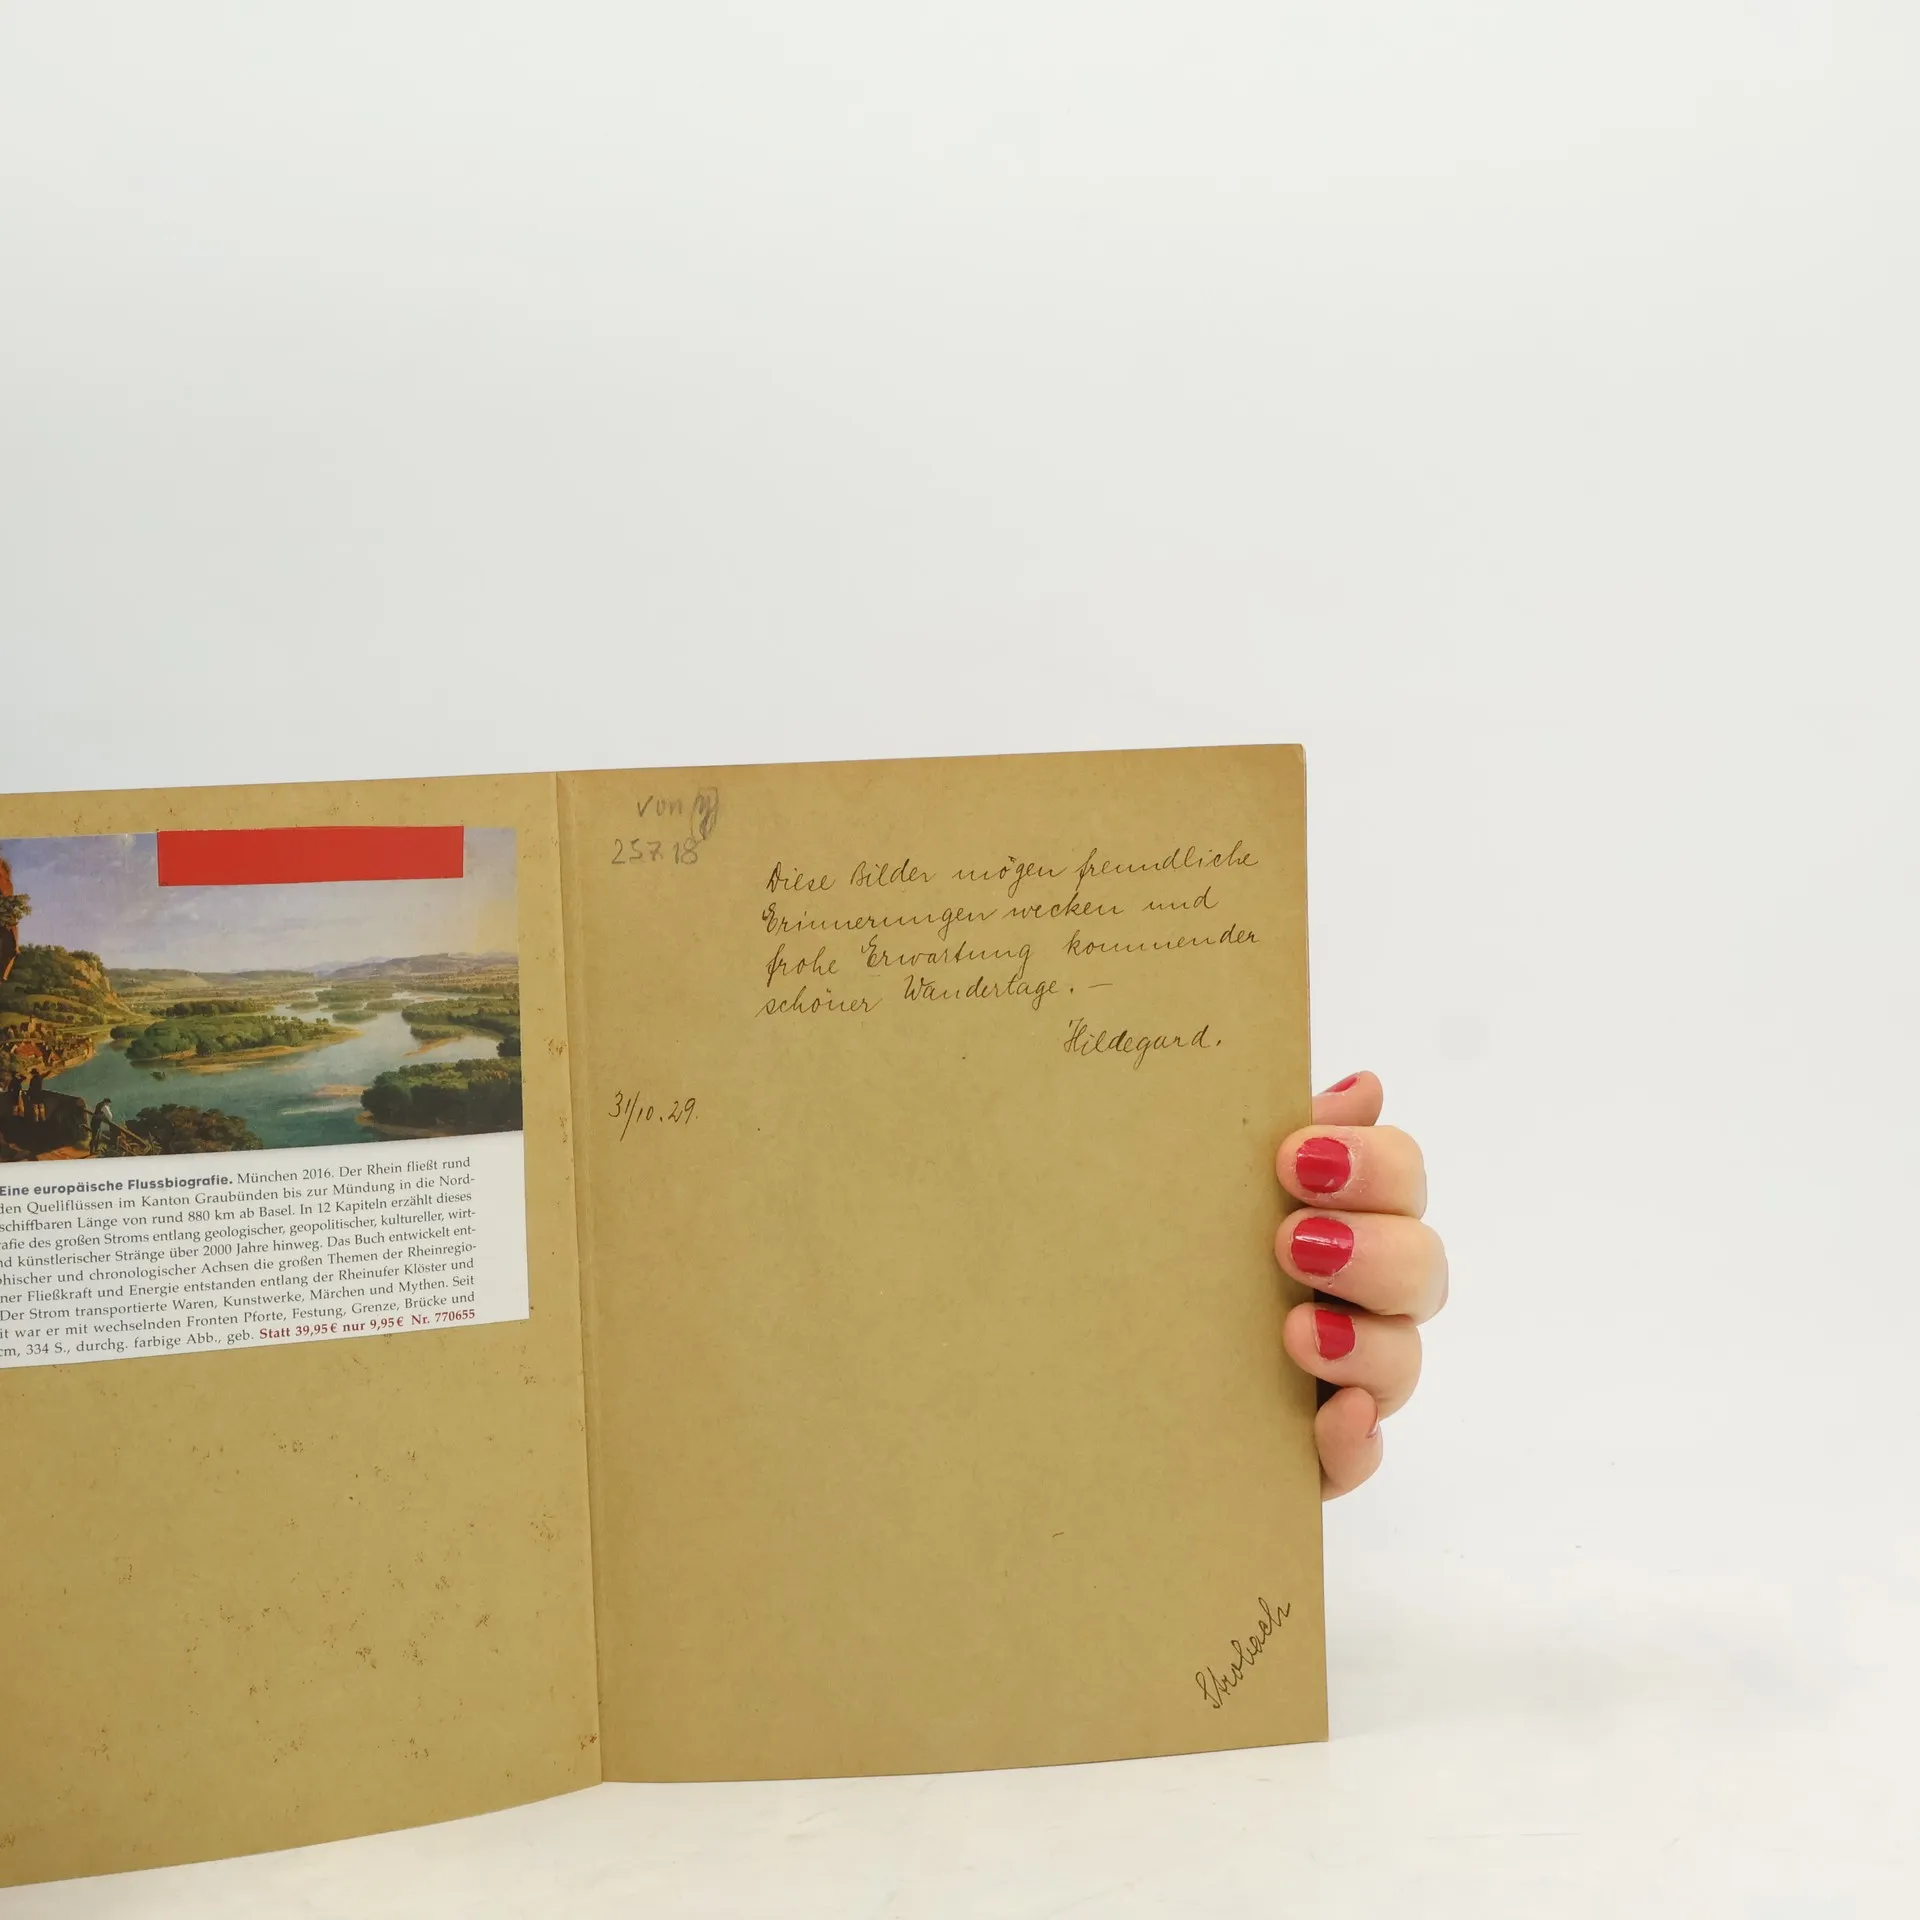 Eine europäische Flussbiografie. München 2016. Der Rhein fließt rund
den Quellflüssen im Kanton Graubünden bis zur Mündung in die Nord-
schiffbaren Länge von rund 880 km ab Basel. In 12 Kapiteln erzählt dieses
des großen Stroms entlang geologischer, geopolitischer, kultureller, wirt-
künstlerischer Stränge über 2000 Jahre hinweg. Das Buch entwickelt ent-
und chronologischer Achsen die großen Themen der Rheinregio-
Fließkraft und Energie entstanden entlang der Rheinufer Klöster und
Der Strom transportierte Waren, Kunstwerke, Märchen und Mythen. Seit
war er mit wechselnden Fronten Pforte, Festung, Grenze, Brücke und
cm, 334 S., durchg. farbige Abb., geb. Statt 39,95 € nur 9,95 € Nr. 770655
von
257.18
Diese Bilder mögen freundliche
Erinnerungen wecken und
frohe Erwartung kommender
schöner Wandertage. –
Hildegard.
31/10.29.
Strobach